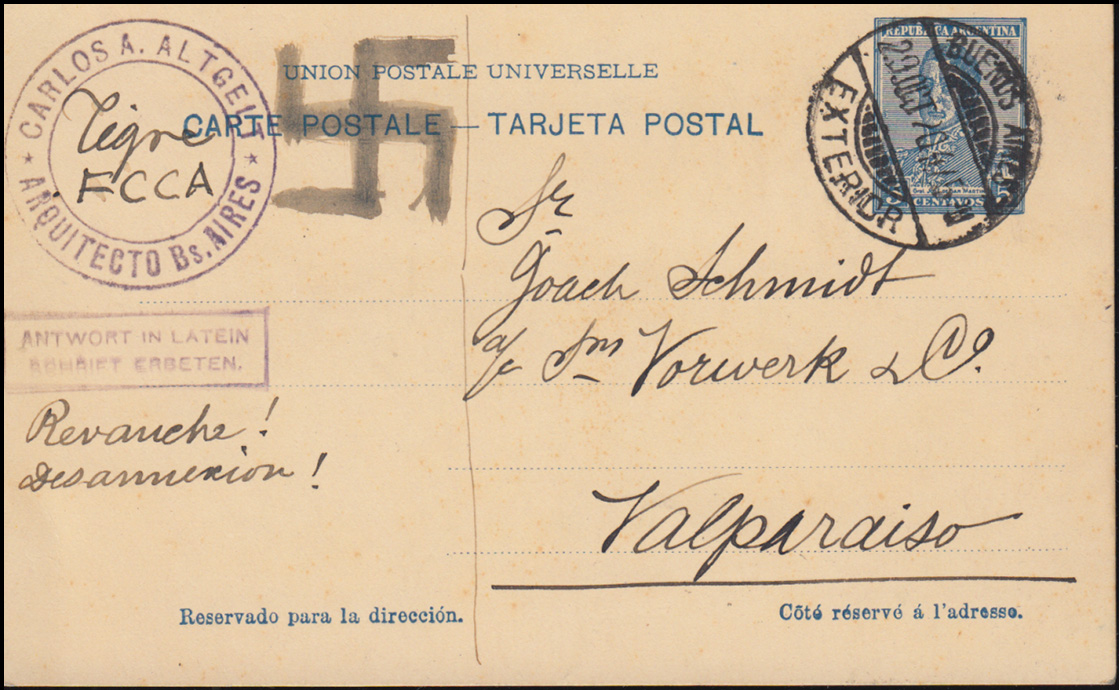 CARLOS A. ALTGELT
★ ARQUITECTO Bs. AIRES ★
Tigre
FCCA
UNION POSTALE UNIVERSELLE
CARTE POSTALE — TARJETA POSTAL
REPUBLICA ARGENTINA
5 CENTAVOS 5
BUENOS AIRES
EXTERIOR
Sr
Goach Schmidt
a/c Sres Vorwerk & Co.
Valparaiso
ANTWORT IN LATEIN
SCHRIFT ERBETEN.
Revanche!
Desannexion!
Reservado para la dirección.
Côté réservé á l'adresse.